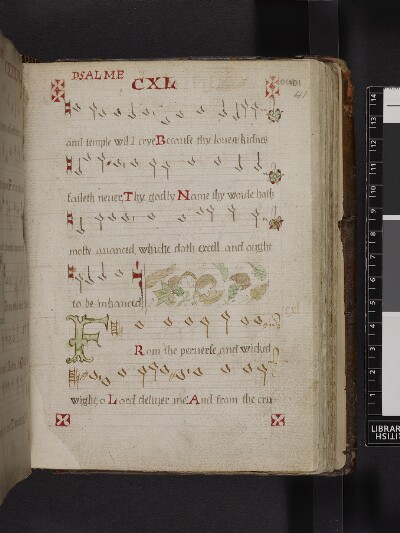 PSALME
CXL
41
and temple will I crye Because thy loue & kidnes
faileth neuer, Thy godly Name thy worde hath
moste auanced, whiche doth excell and ought
to be inhanced
From the peruerse and wicked
wight o Lord deliuer me: And from the cru
14
13
12
11
10
9
8
7
6
5
4
3
2
1
LIBRAR
BRITISH